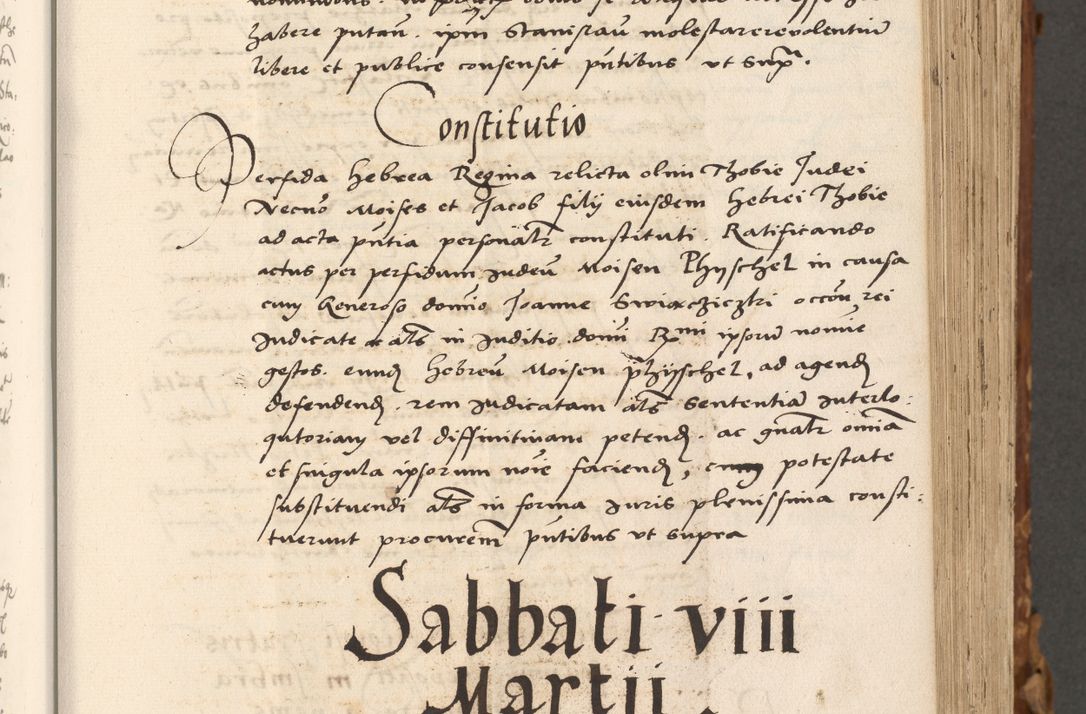 habere putaū. ipm̄ Stanislaū molestare revolentiū
libere et publice consensit pn̄tibus vt Supᵃ.
Constitutio
Perfida hebrea Regina relicta olim Thobie Judei
Necnō Moises et Jacob filij eiusdem hebrei Thobie
ad acta pn̄tia personalr̄ constituti. Ratificando
actus per perfidum Judeū Moisen Physchel in causa
cum Generoso domīo Joanne rei
Judicate als̄ in Juditio domī Rᵐⁱ ipsorū nomīe
gestos. eund̄ hebreū Moisen physchel, ad agend̄
defendend̄. rem Judicatam als̄ Sententiā Interlo:
qutoriam vel diffinitivam petend̄. ac gn̄alr̄ omīa
et singula ipsorum noīe faciend̄, cum potestate
substituendi als̄ in forma Juris plenissima consti:
tuerunt procurem̄ pn̄tibus vt supra
Sabbati viii
Martii